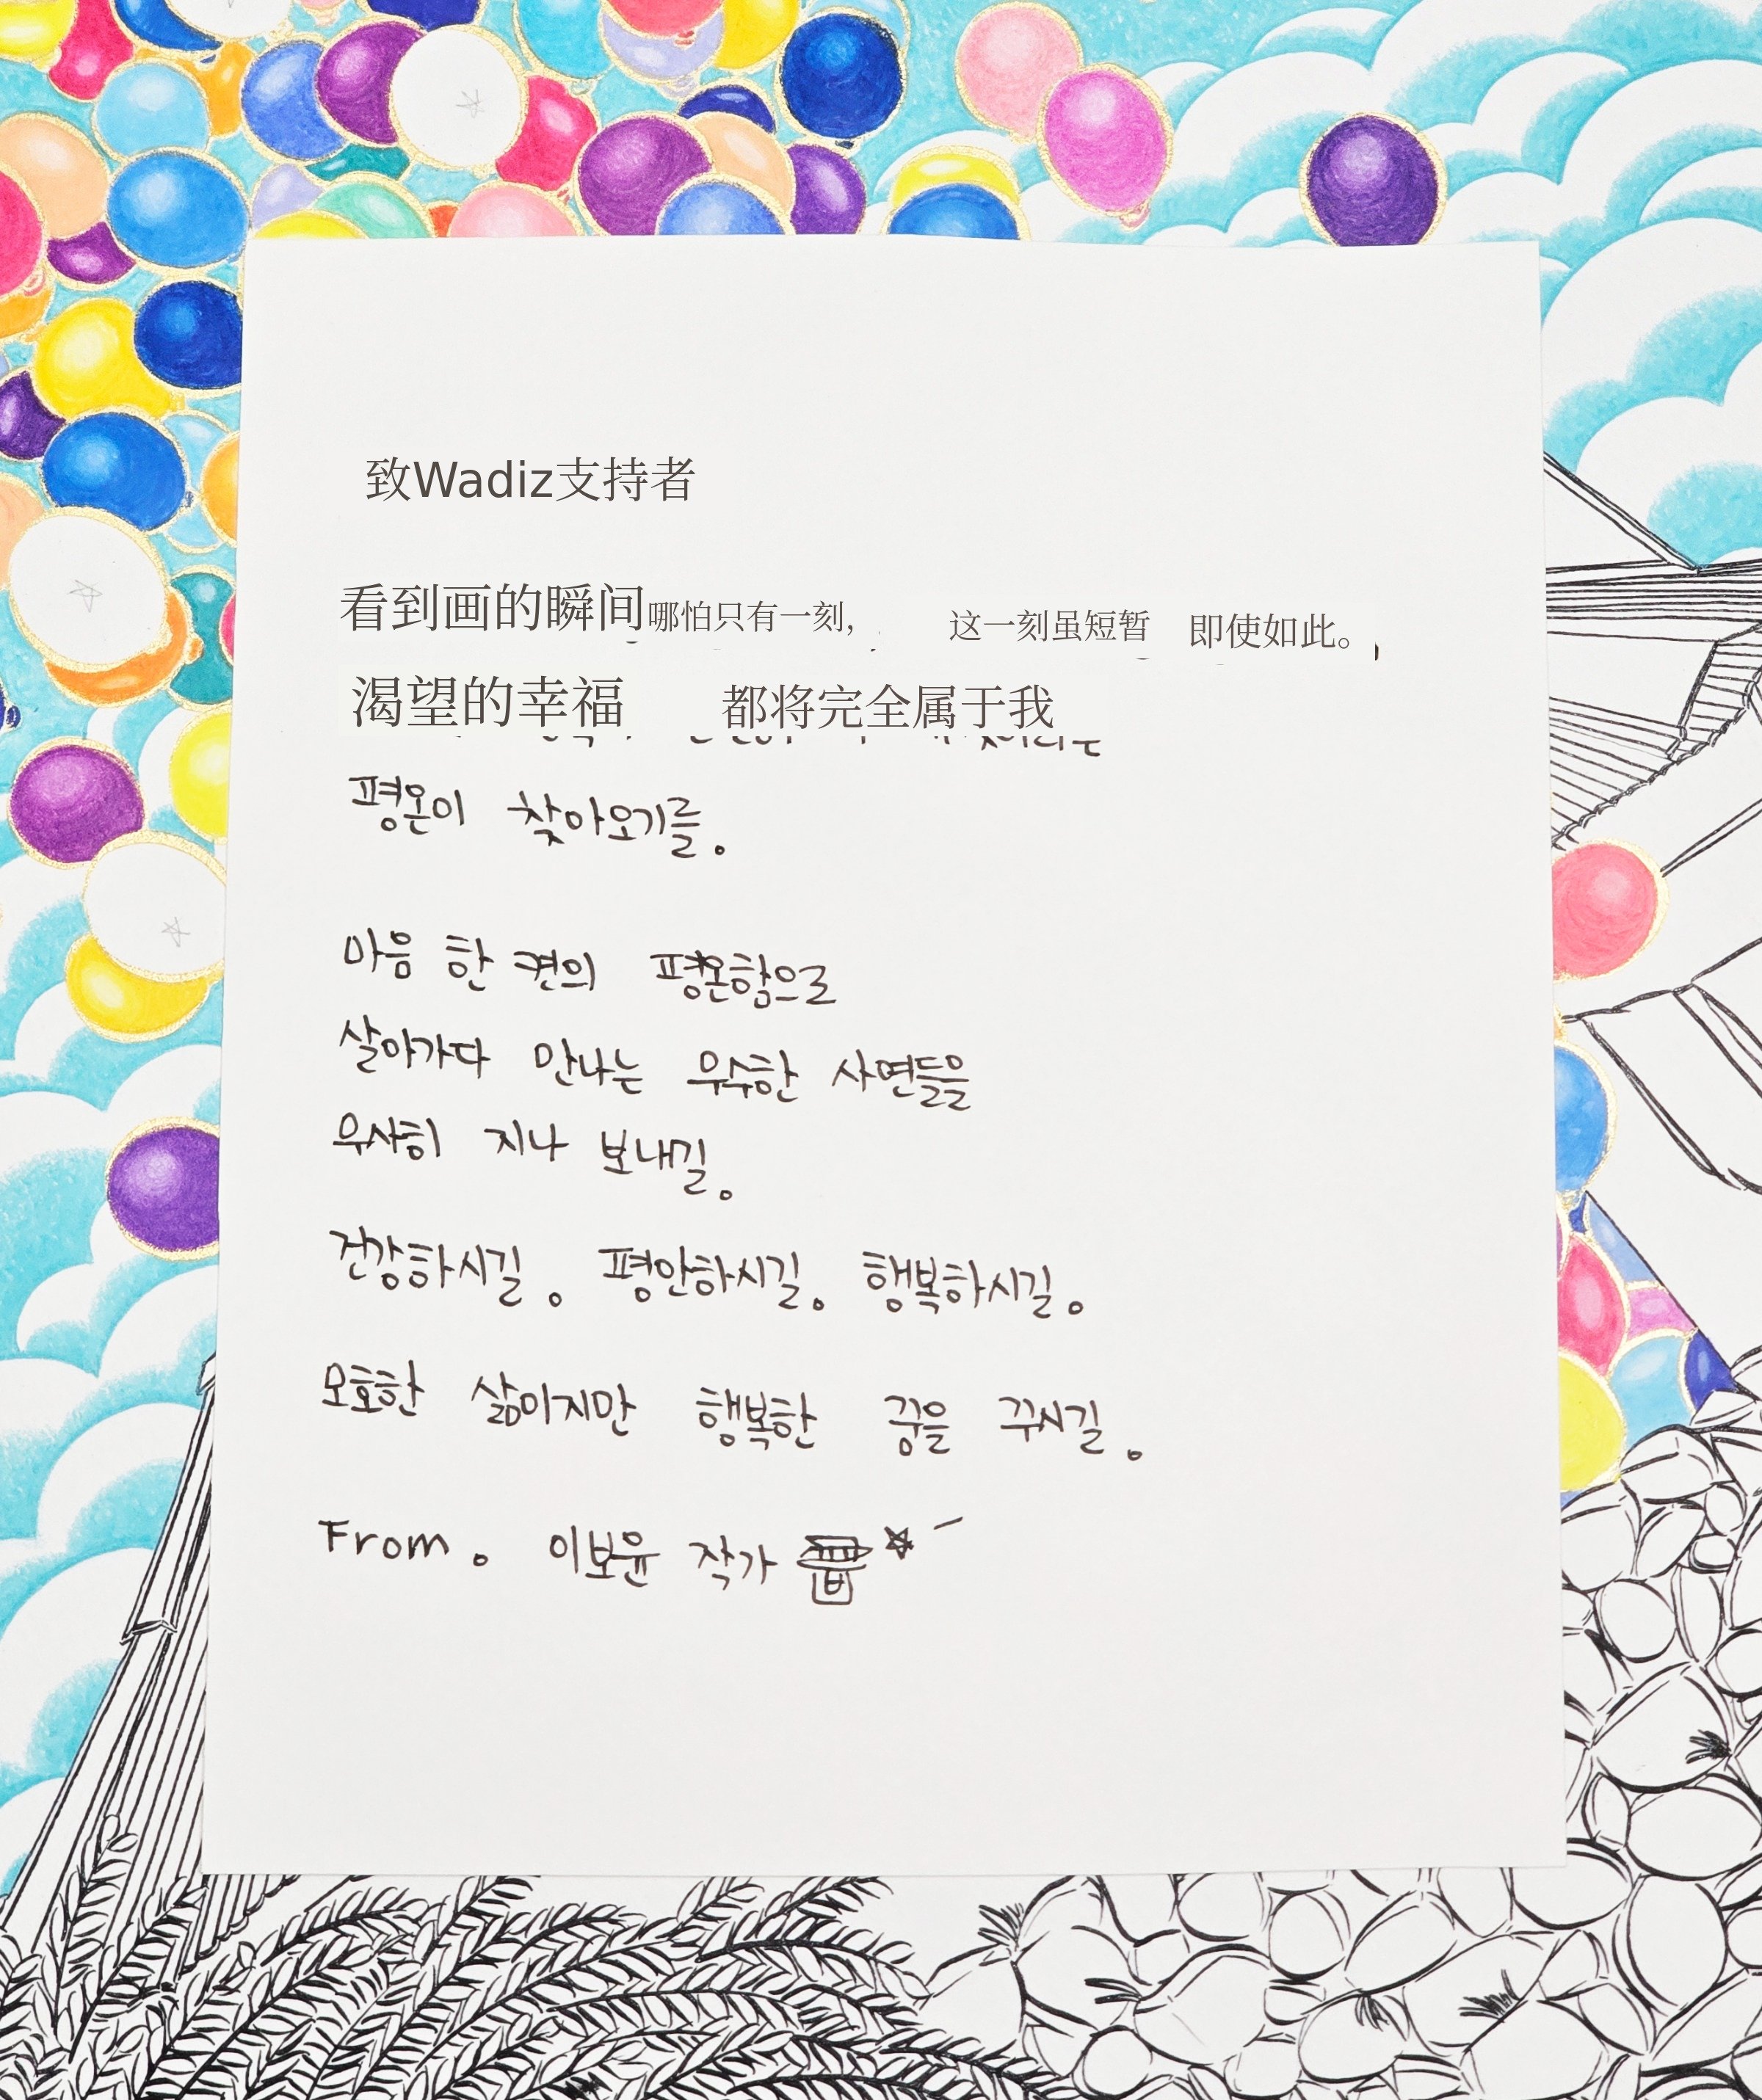 致Wadiz支持者
看到画的瞬间哪怕只有一刻, 这一刻虽短暂 即使如此。
渴望的幸福 都将完全属于我
평온이 찾아오기를。
마음 한 켠의 평온함으로
살아가다 만나는 무수한 사연들을
무사히 지나 보내길。
건강하시길。 평안하시길。 행복하시길。
모호한 삶이지만 행복한 꿈을 꾸시길。
From。 이보윤 작가